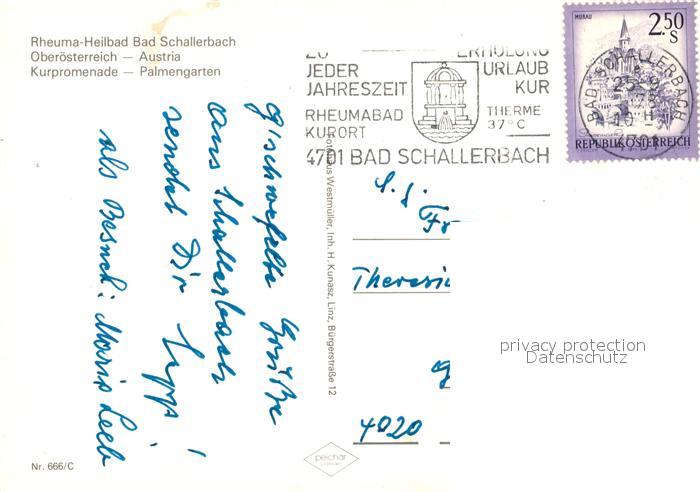 Rheuma-Heilbad Bad Schallerbach
Oberösterreich — Austria
Kurpromenade — Palmengarten
ZU
JEDER
JAHRESZEIT
RHEUMABAD
KURORT
ERHOLUNG
URLAUB
KUR
THERME
37°C
4701 BAD SCHALLERBACH
MURAU
2.50
S
REPUBLIK ÖSTERREICH
BAD SCHALLERBACH
4701
G'schwefelte Grüße
aus Schallerbach
sendet Dir Sepp!
als Besuch: Maria Leeb
Fotohaus Westmüller, Inh. H. Kunasz, Linz, Bürgerstraße 12
Fr
Theresi
4020
privacy protection
Datenschutz
peichär
Nr. 666/C